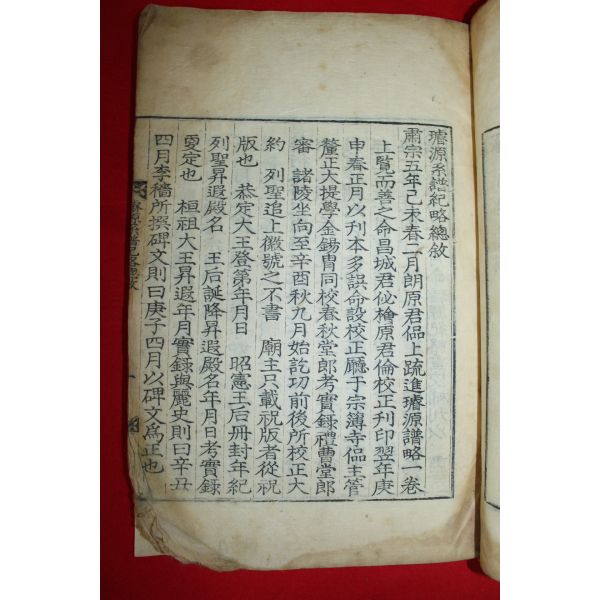 璿源系譜紀略總敘
肅宗五年己未春二月朗原君偘上疏進璿源譜略一卷
上覽而善之命昌城君佖檜原君倫校正刊印翌年庚
申春正月以刊本多誤命設校正廳于宗簿寺偘主管
釐正大提學金錫胄同校春秋堂郎考實錄禮曹堂郎
審 諸陵坐向至辛酉秋九月始訖功前後所校正大
約 列聖追上徽號之不書 廟主只載祝版者從祝
版也 恭定大王登第年月日 昭憲王后冊封年紀
列聖昇遐殿名 王后誕降昇遐殿名年月日考實錄
更定也 桓祖大王昇遐年月實錄與麗史則曰辛丑
四月李穡所撰碑文則曰庚子四月以碑文為正也